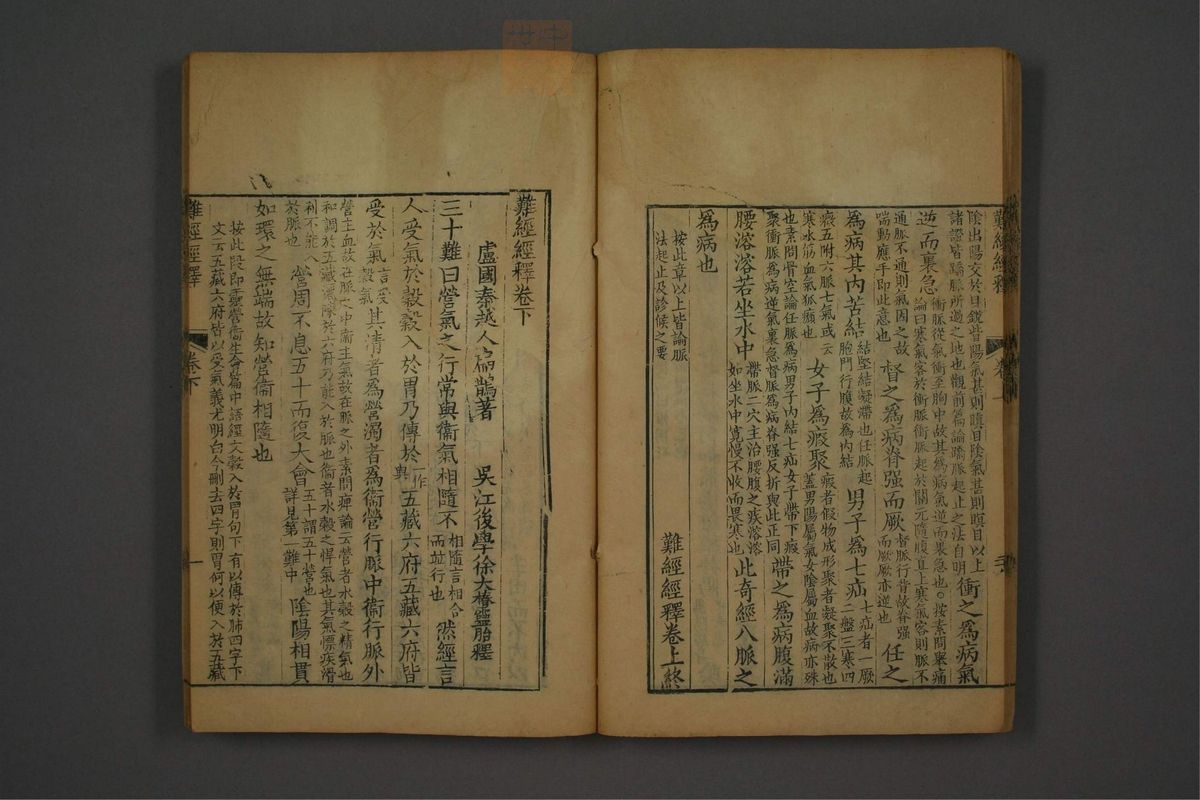 難經經釋
陰出陽交於目銳眥陽氣甚則瞋目陰氣甚則瞑目以上
諸證皆蹻脈所過之地也觀前篇論蹻脈起止之法自明
衝之為病氣
逆而裏急
衝脈從氣衝至胸中故其為病氣逆而裏急也。按素問舉痛
論曰寒氣客於衝脈衝脈起於關元隨腹直上寒氣客則脈不
通脈不通則氣因之故
喘動應手即此意也
督之為病脊强而厥
督脈行背故脊强
而厥厥亦逆也
任之
為病其內苦結
結堅結凝滯也任脈起
胞門行腹故為內結
男子為七疝
七疝者一厥
二盤三寒四
癥五附六脈七氣或云
寒水筋血氣狐㿗也
女子為瘕聚
瘕者假物成形聚者凝聚不散也
蓋男陽屬氣女陰屬血故病亦殊
也素問骨空論任脈為病男子內結七疝女子帶下瘕
聚衝脈為病逆氣裏急督脈為病脊强反折與此正同
帶之為病腹滿
腰溶溶若坐水中
帶脈二穴主治腰腹之疾溶溶
如坐水中寬慢不收而畏寒也
此奇經八脈之
為病也
按此章以上皆論脈
法起止及診候之要
難經經釋卷上終
難經經釋卷下
盧國秦越人扁鵲著 吳江後學徐大椿靈胎釋
三十難曰營氣之行常與衞氣相隨不
相隨言相合
而竝行也
然經言
人受氣於穀穀入於胃乃傳於
一作
與
五藏六府五藏六府皆
受於氣
言受
穀氣
其清者為營濁者為衞營行脈中衞行脈外
營主血故在脈之中衞主氣故在脈之外素問痺論云營者水穀之精氣也
和調於五藏灑陳於六府乃能入於脈也衞者水穀之悍氣也其氣慓疾滑
利不能入
於脈也
營周不息五十而復大會
五十謂五十營也
詳見第一難中
陰陽相貫
如環之無端故知營衞相隨也
按此段即靈營衞生會篇中語經文穀入於胃句下有以傳於肺四字下
文云五藏六府皆以受氣義尤明白今刪去四字則胃何以便入於五藏
難經經釋
卷下
一